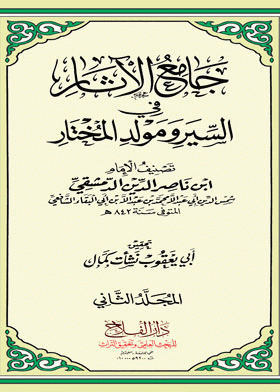 جامع الآثار
في
السير ومولد المختار
تصنيف الإمام
ابن ناصر الدين الدمشقي
شمس الدين أبي عبد الله محمد بن عبد الله بن أبي البقاء الشافعي
المتوفى سنة ٨٤٢ هـ
تحقيق
أبي يعقوب نشأت كمال
المجلد الثاني
دار الفلاح
للبحث العلمي وتحقيق التراث